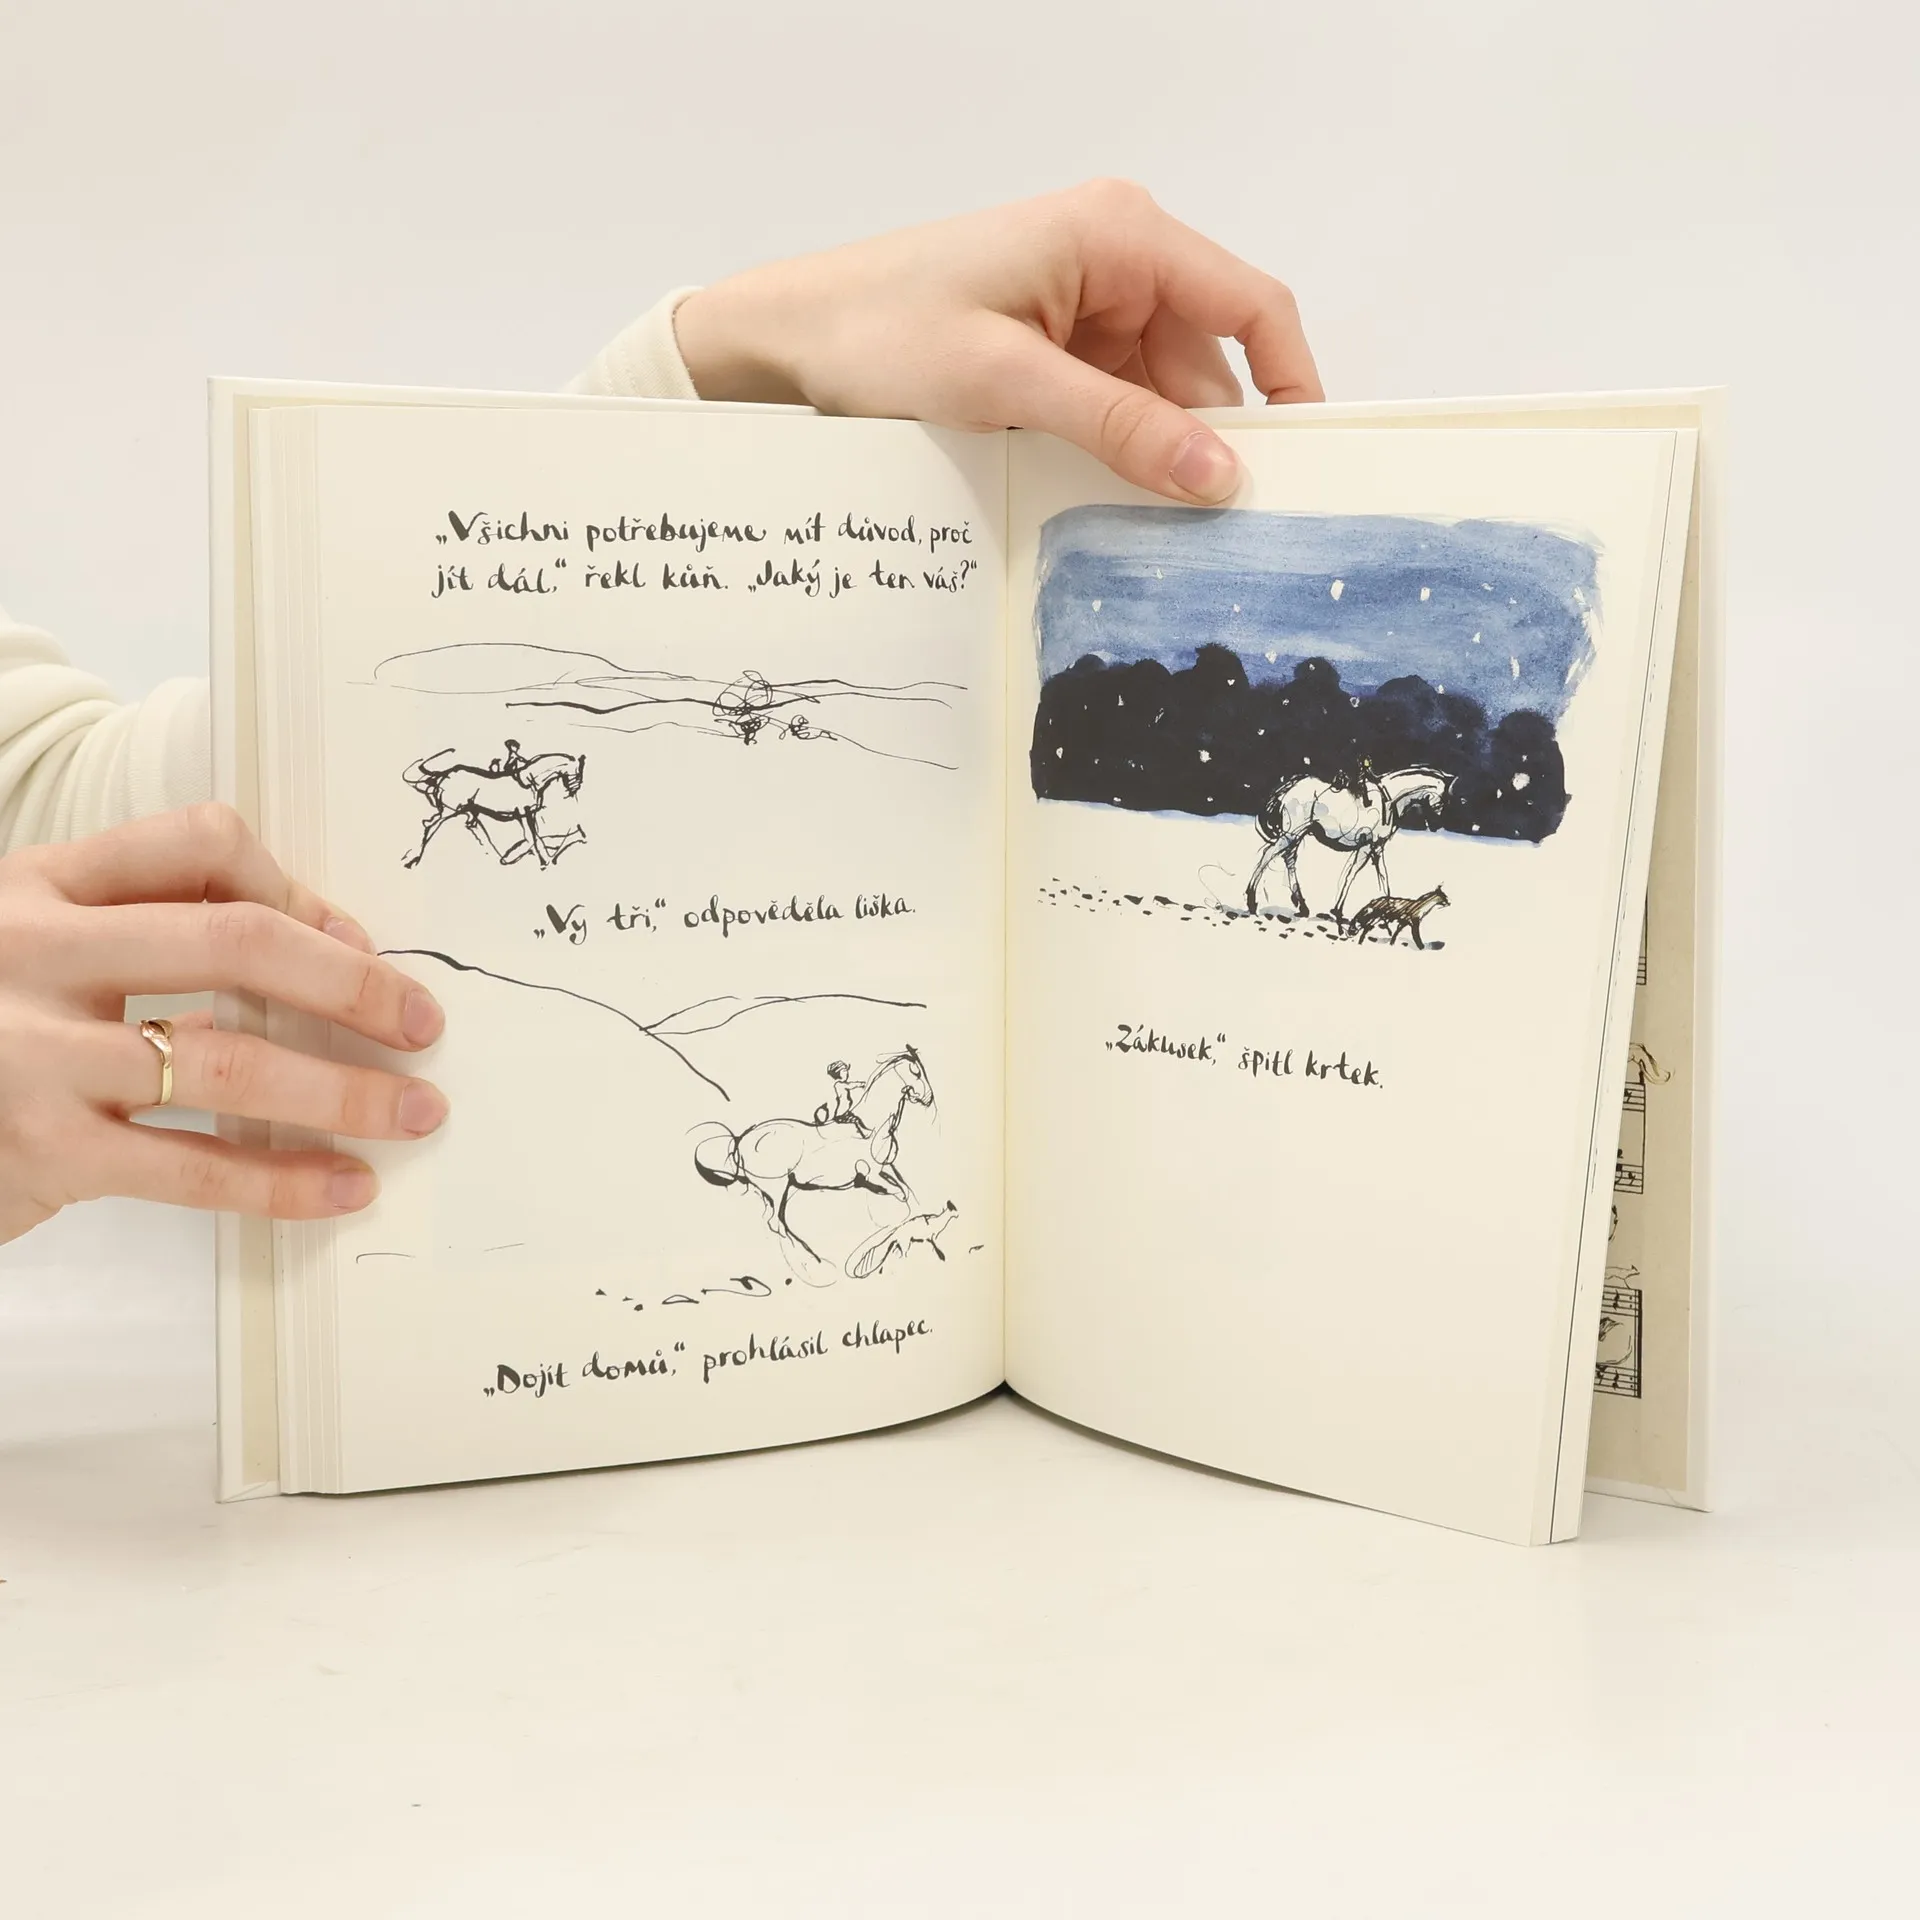 „Všichni potřebujeme mít důvod, proč
jít dál,“ řekl kůň. „Jaký je ten váš?“
„Vy tři,“ odpověděla liška.
„Dojít domů,“ prohlásil chlapec.
„Zákusek,“ špitl krtek.